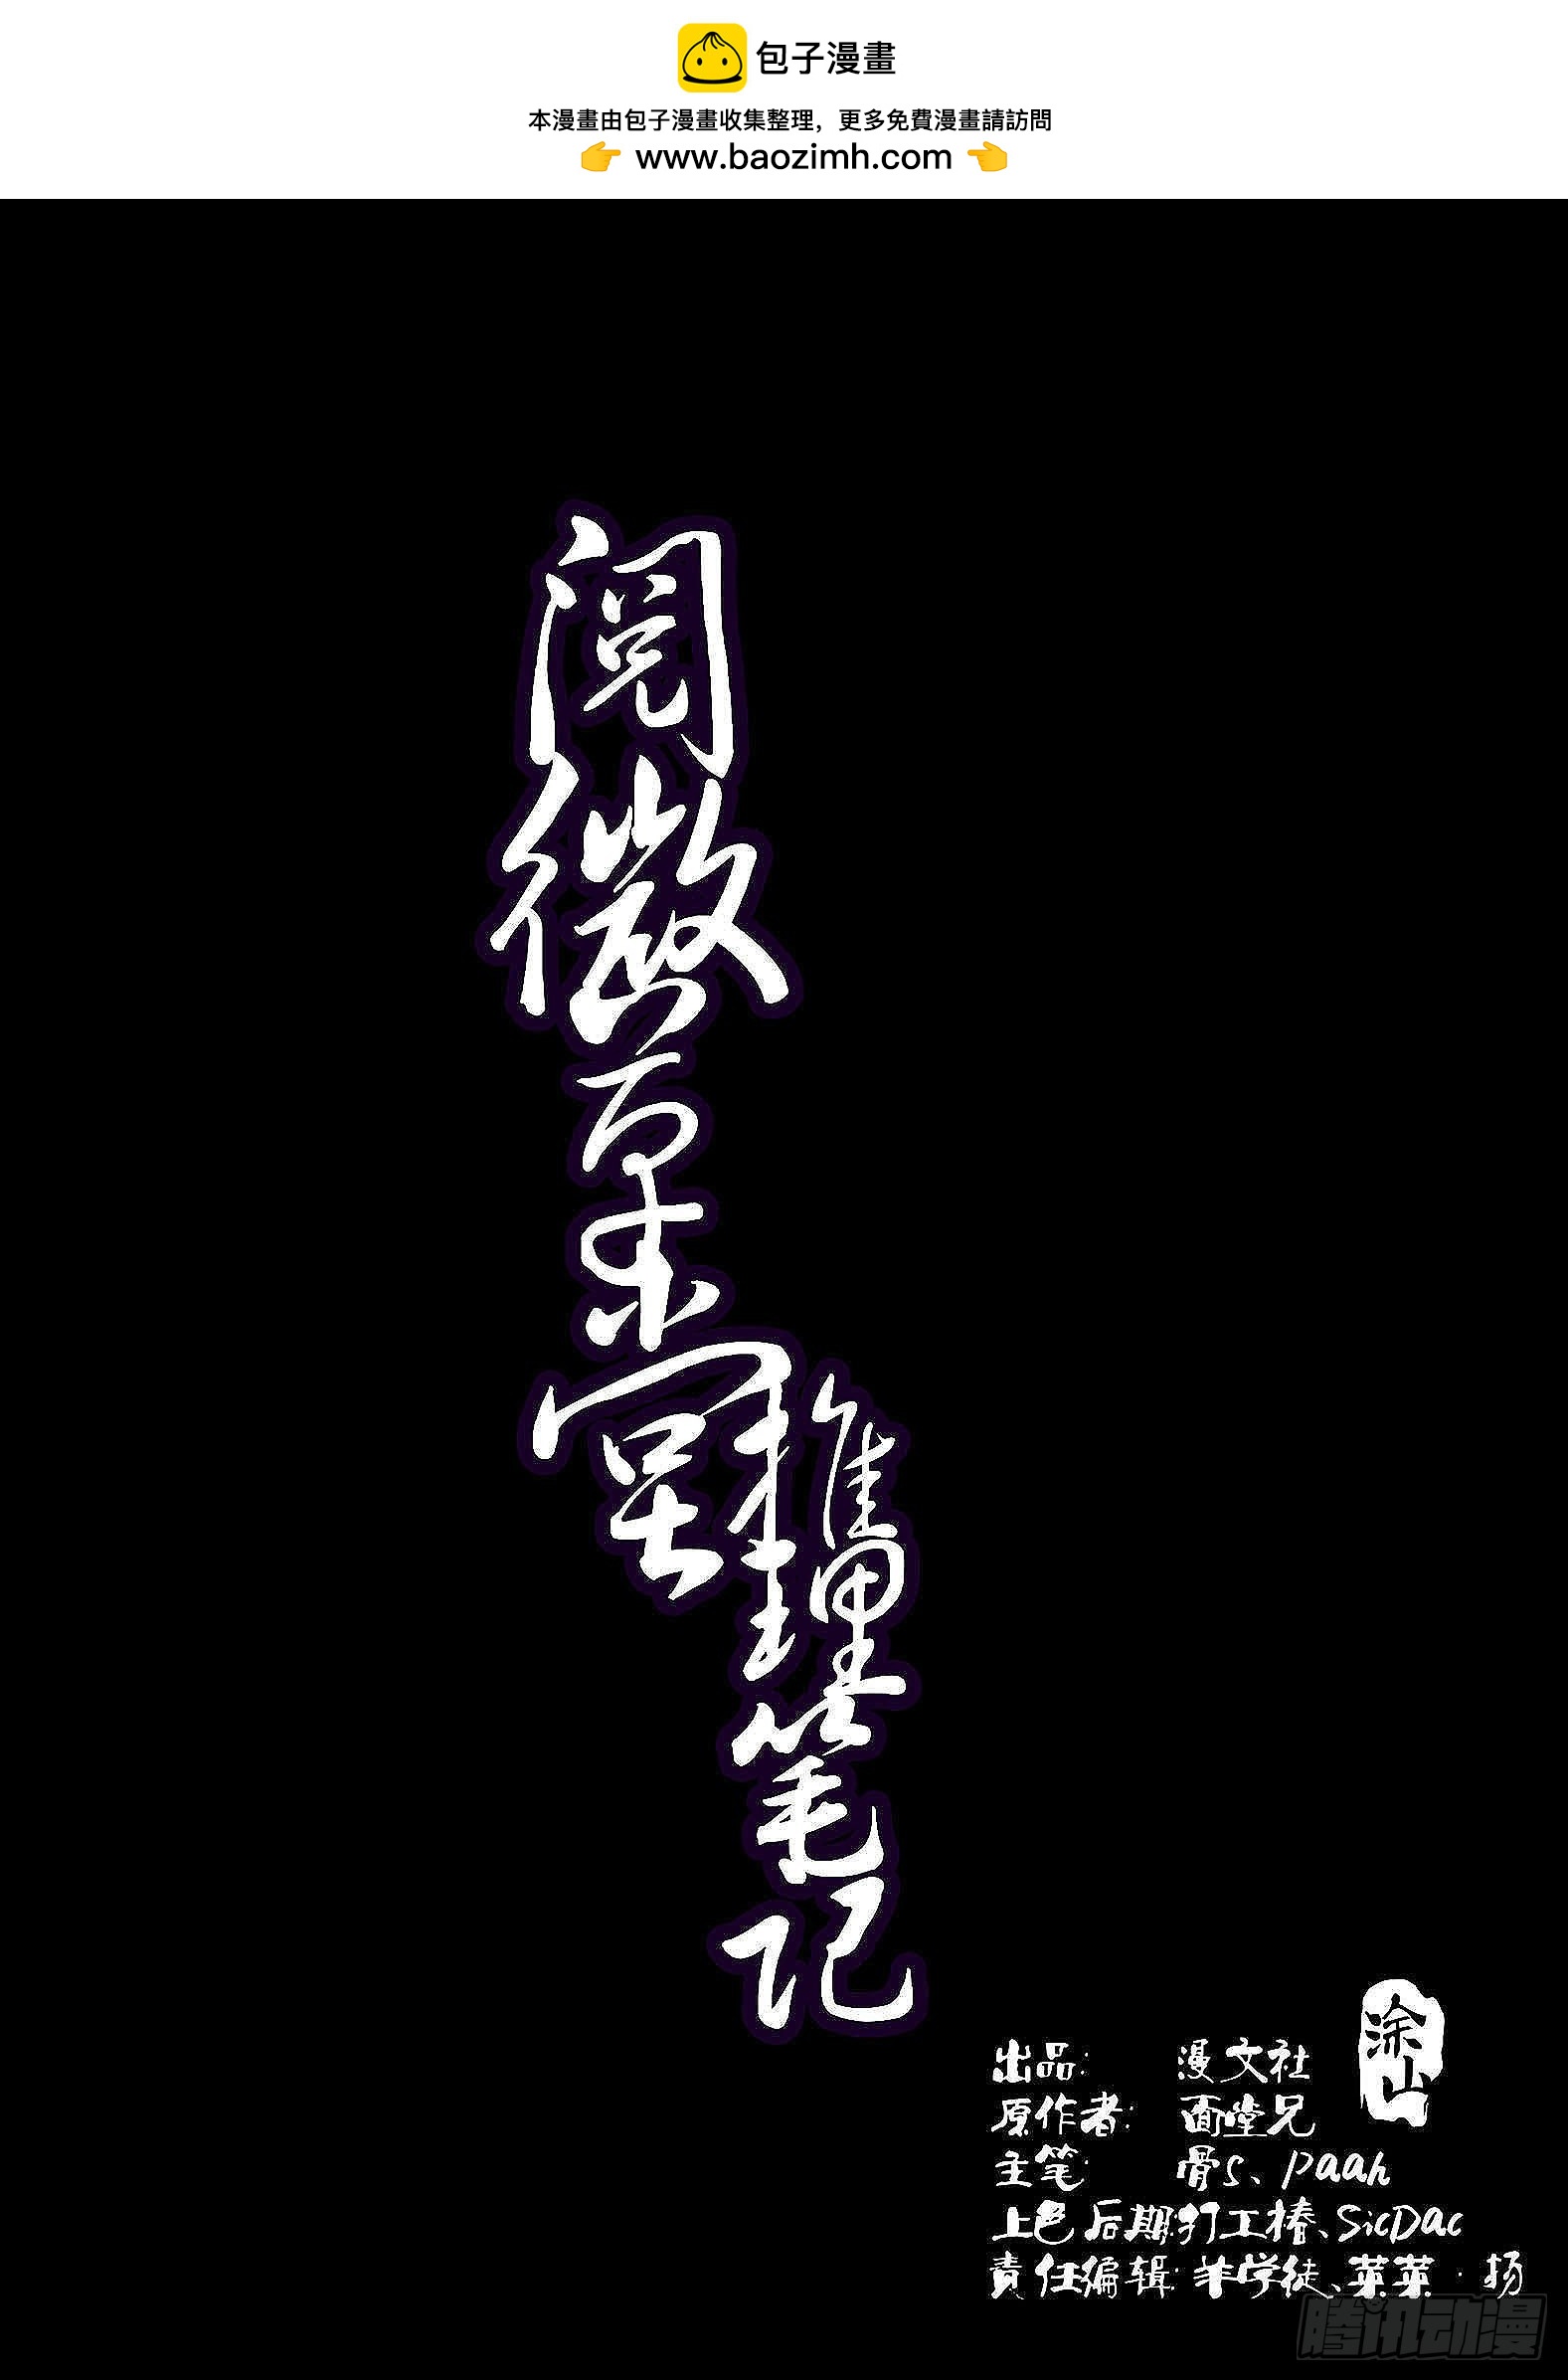 包子漫畫
本漫畫由包子漫畫收集整理，更多免費漫畫請訪問
👉 www.baozimh.com 👈
阅微草堂
推理笔记
涂山
出品: 漫文社
原作者: 面堂兄
主笔: 骨S、paah
上色后期:打工椿、SicDac
責任编辑:羊学徒、菜菜·扬
腾讯动漫